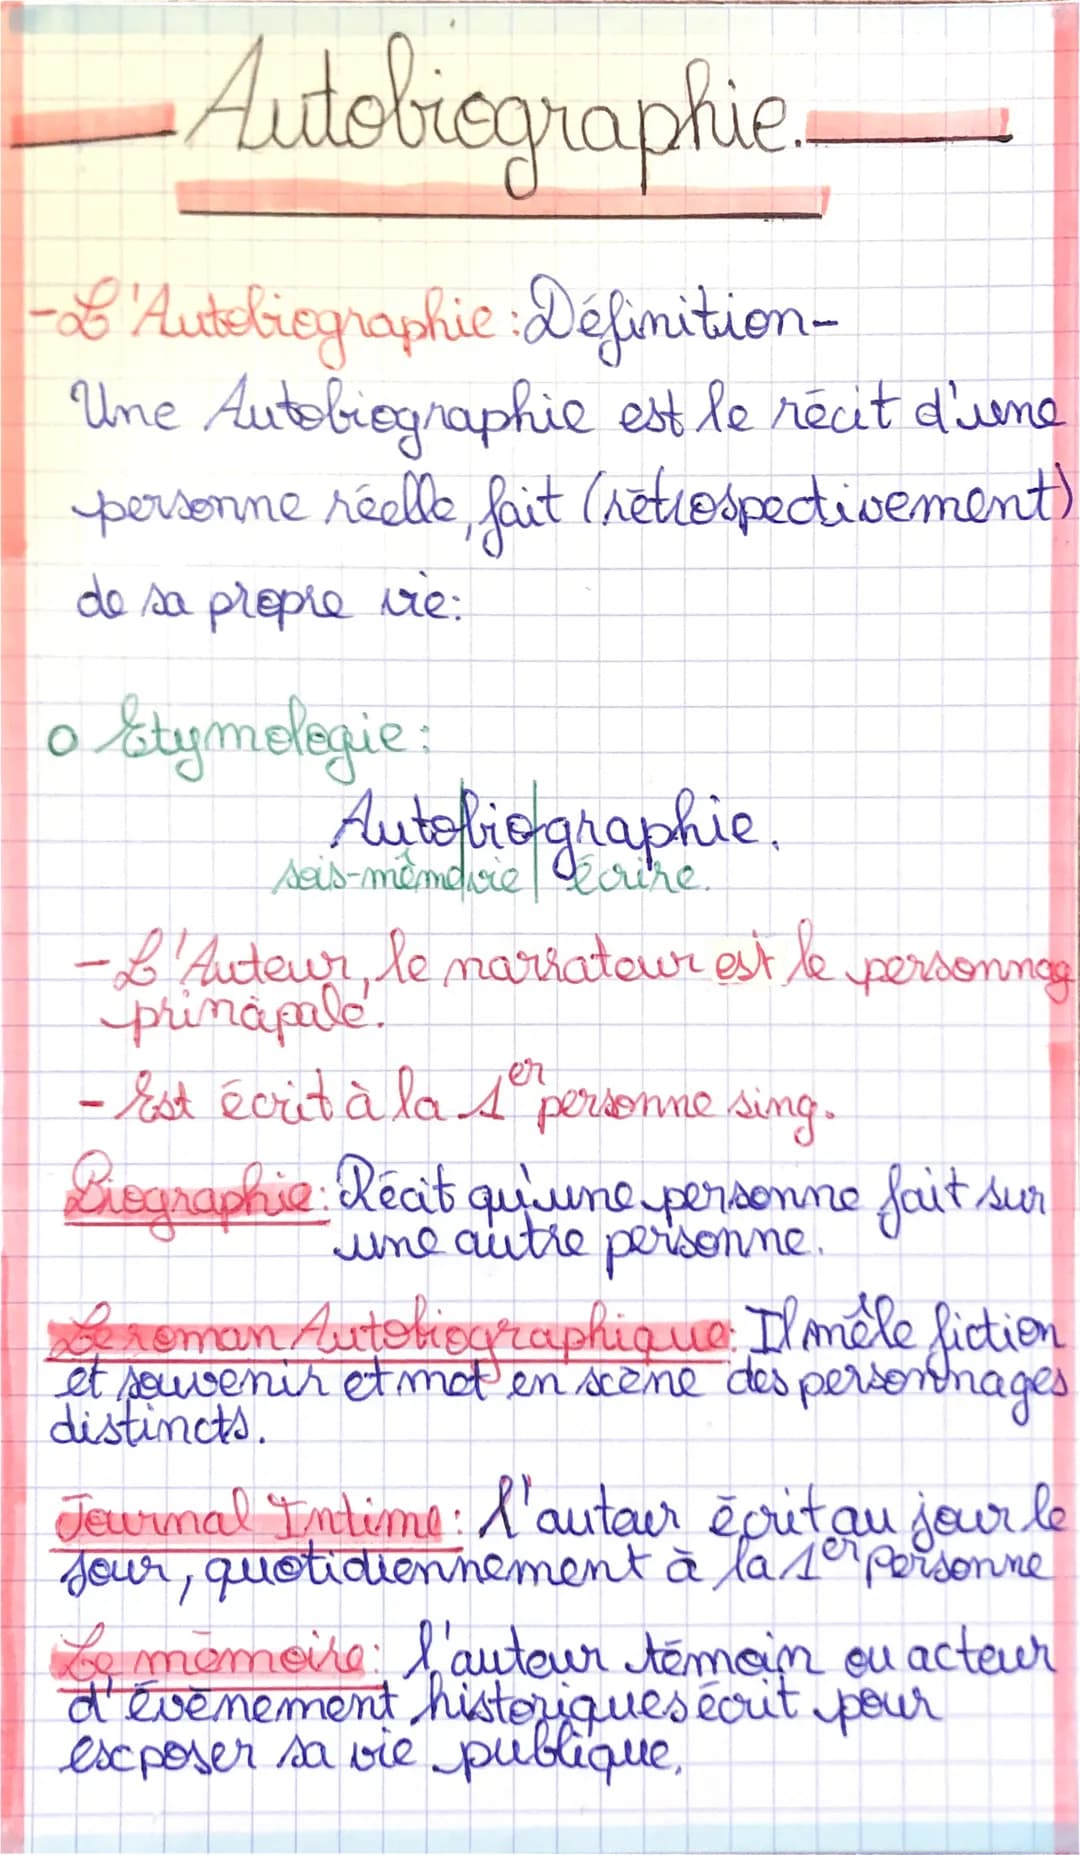 Autobiographie.
-L'Autobiographie : Définition-
Une Autobiographie est le récit d'une
personne réelle, fait (rétrospectivement)
de sa propre vie:
o Etymologie :
Autobiographie.
sois-même vie écrire.
- L'Auteur, le narrateur est le personnag
principale.
- Est écrit à la 1er personne sing.
Biographie: Récit qu'une personne fait sur
une autre personne.
Le roman Autobiographique: Il mêle fiction
et souvenir et met en scène des personnages
distincts.
Journal Intime: l'auteur écrit au jour le
jour, quotidiennement à la 1er personne
Le mémoire: l'auteur témoin ou acteur
d'évènement historiques écrit pour
exposer sa vie publique.